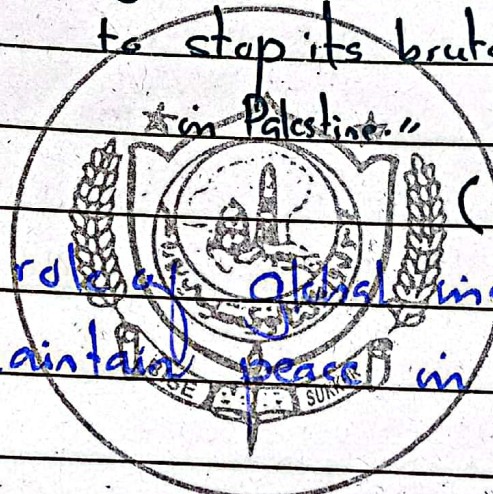 to stop its brut
in Palestine."
(
role of global ins
aintain peace in
SUKKUR